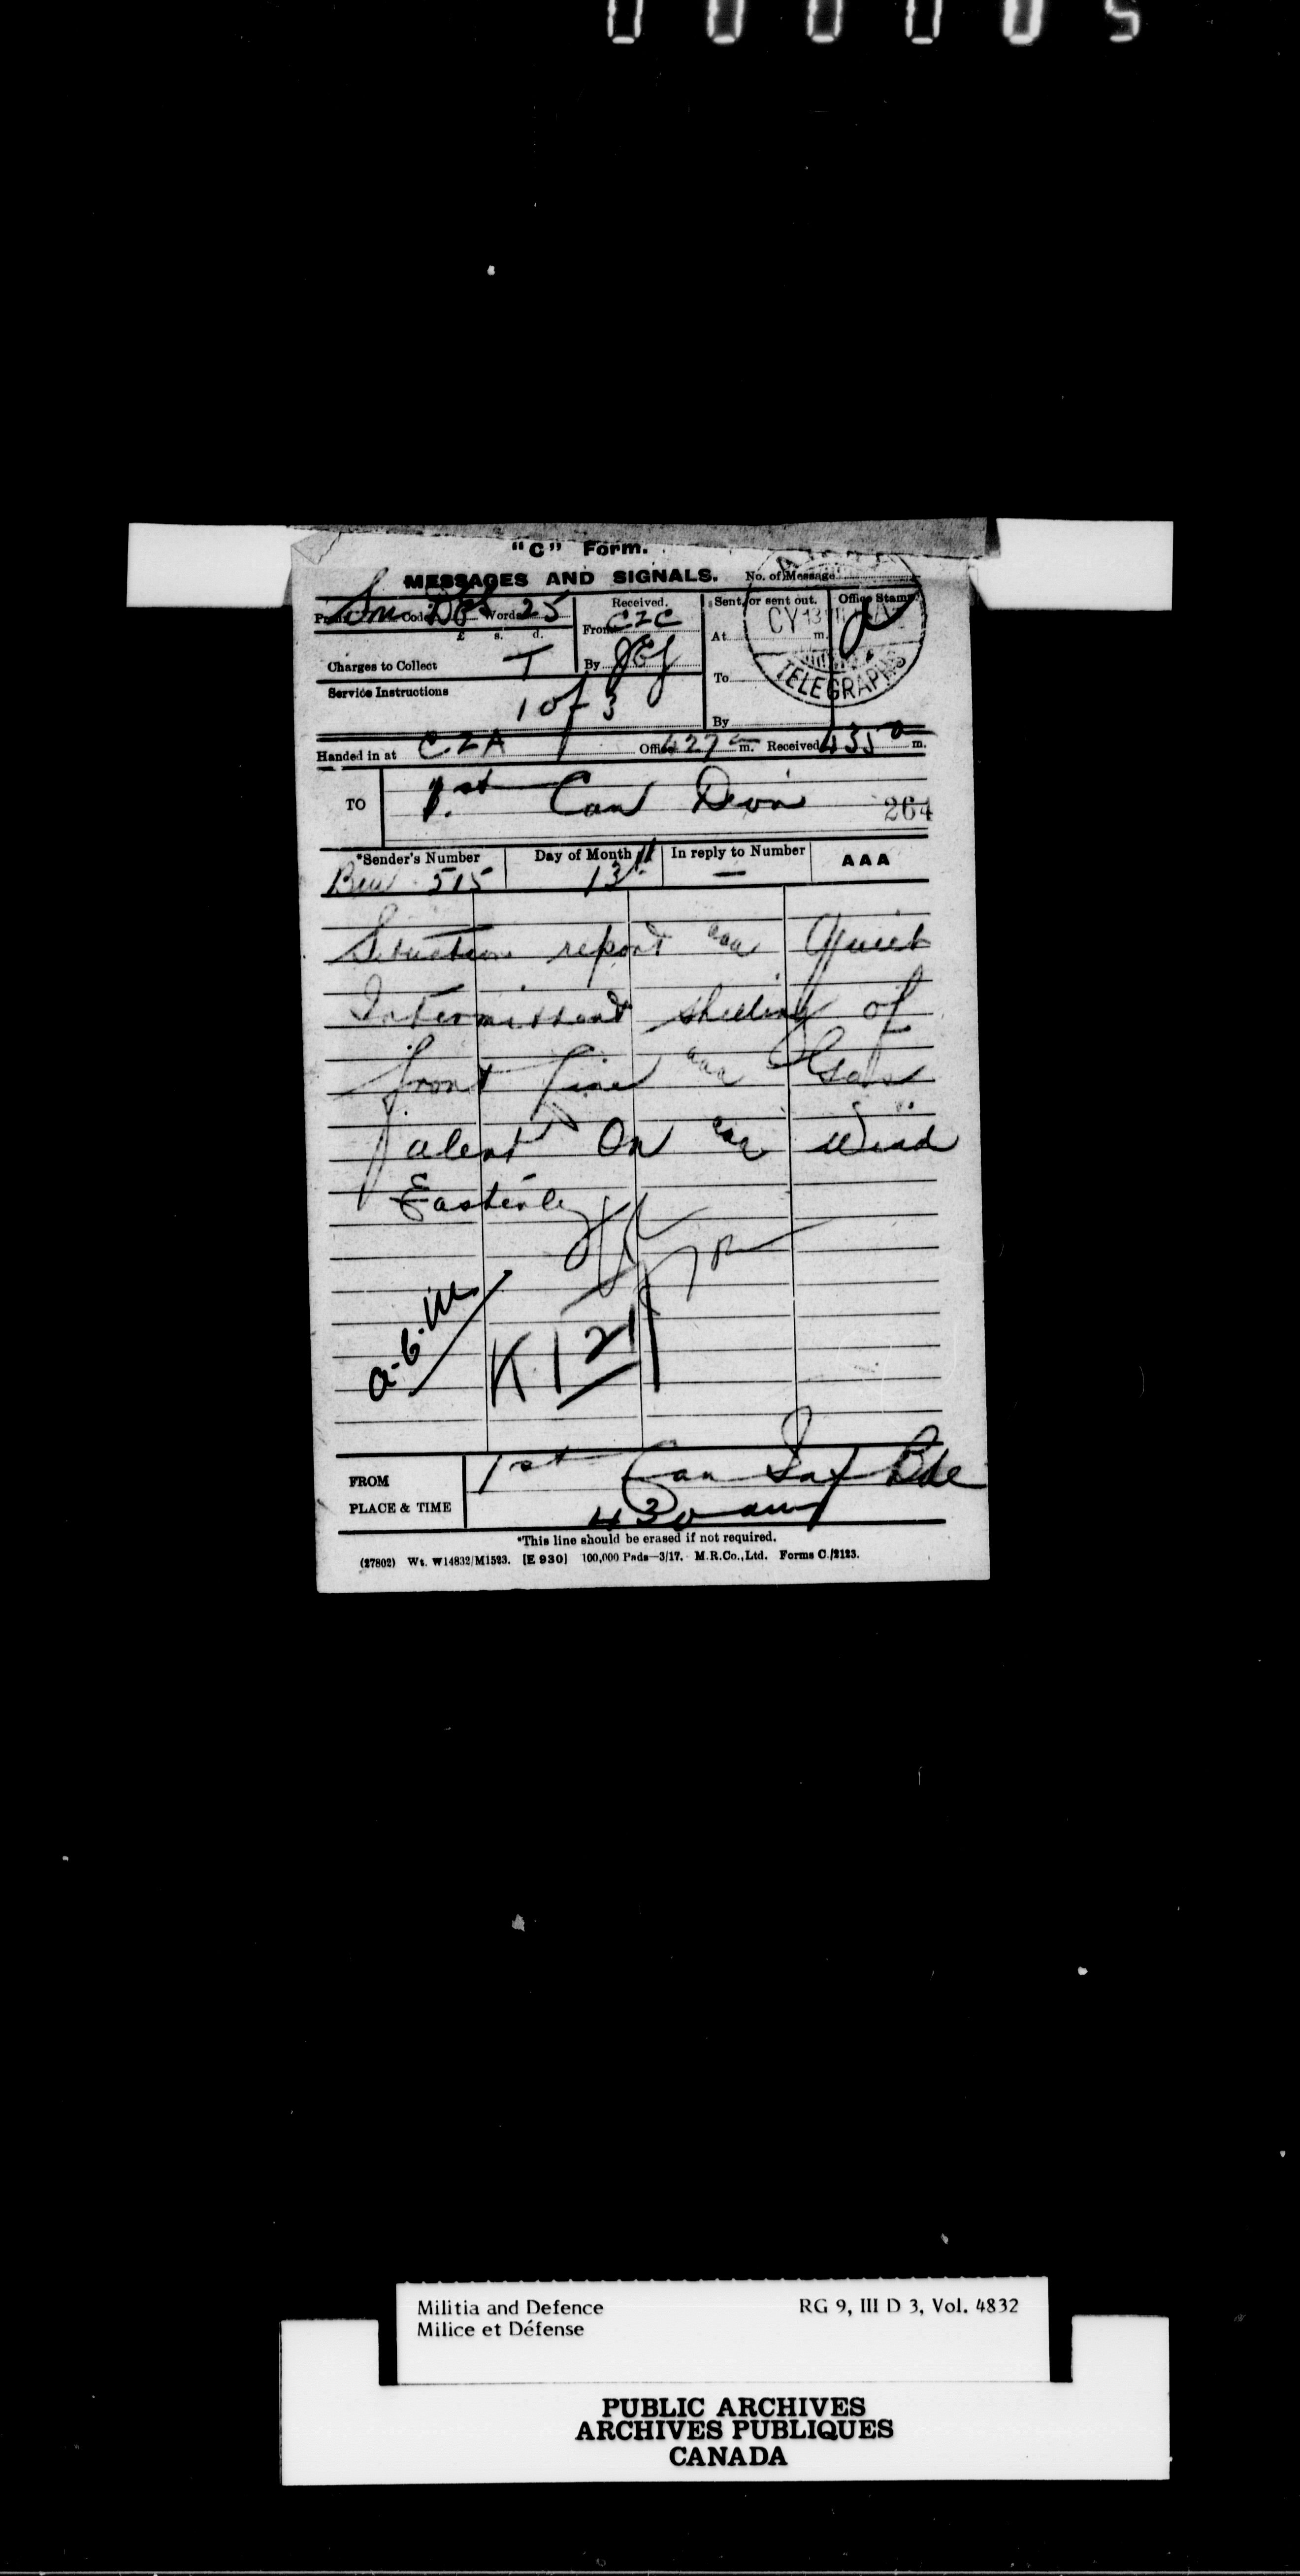 000005
"C" Form.
MESSAGES AND SIGNALS.
No. of Message
Prefix Sm Code Words 25
£ s. d.
Charges to Collect
T
Service Instructions
1 of 3
Received.
From CZC
By
Sent, or sent out.
At m.
To
By
Office Stamp
CY 13
TELEGRAPHS
Handed in at CZA Office 427 a m. Received 435 a m.
TO 1st Can Divn
264
*Sender's Number Day of Month In reply to Number AAA
515 13th —
Situation report aaa Quiet
Intermittent shelling of
front line aaa Gas
alert On aaa Wind
Easterly
K 121
FROM 1st Can Inf Bde
PLACE & TIME 430 am
*This line should be erased if not required.
(27802) Wt. W14832/M1523. [E 930] 100,000 Pads—3/17. M.R.Co.,Ltd. Forms C./2123.
Militia and Defence RG 9, III D 3, Vol. 4832
Milice et Défense
PUBLIC ARCHIVES
ARCHIVES PUBLIQUES
CANADA